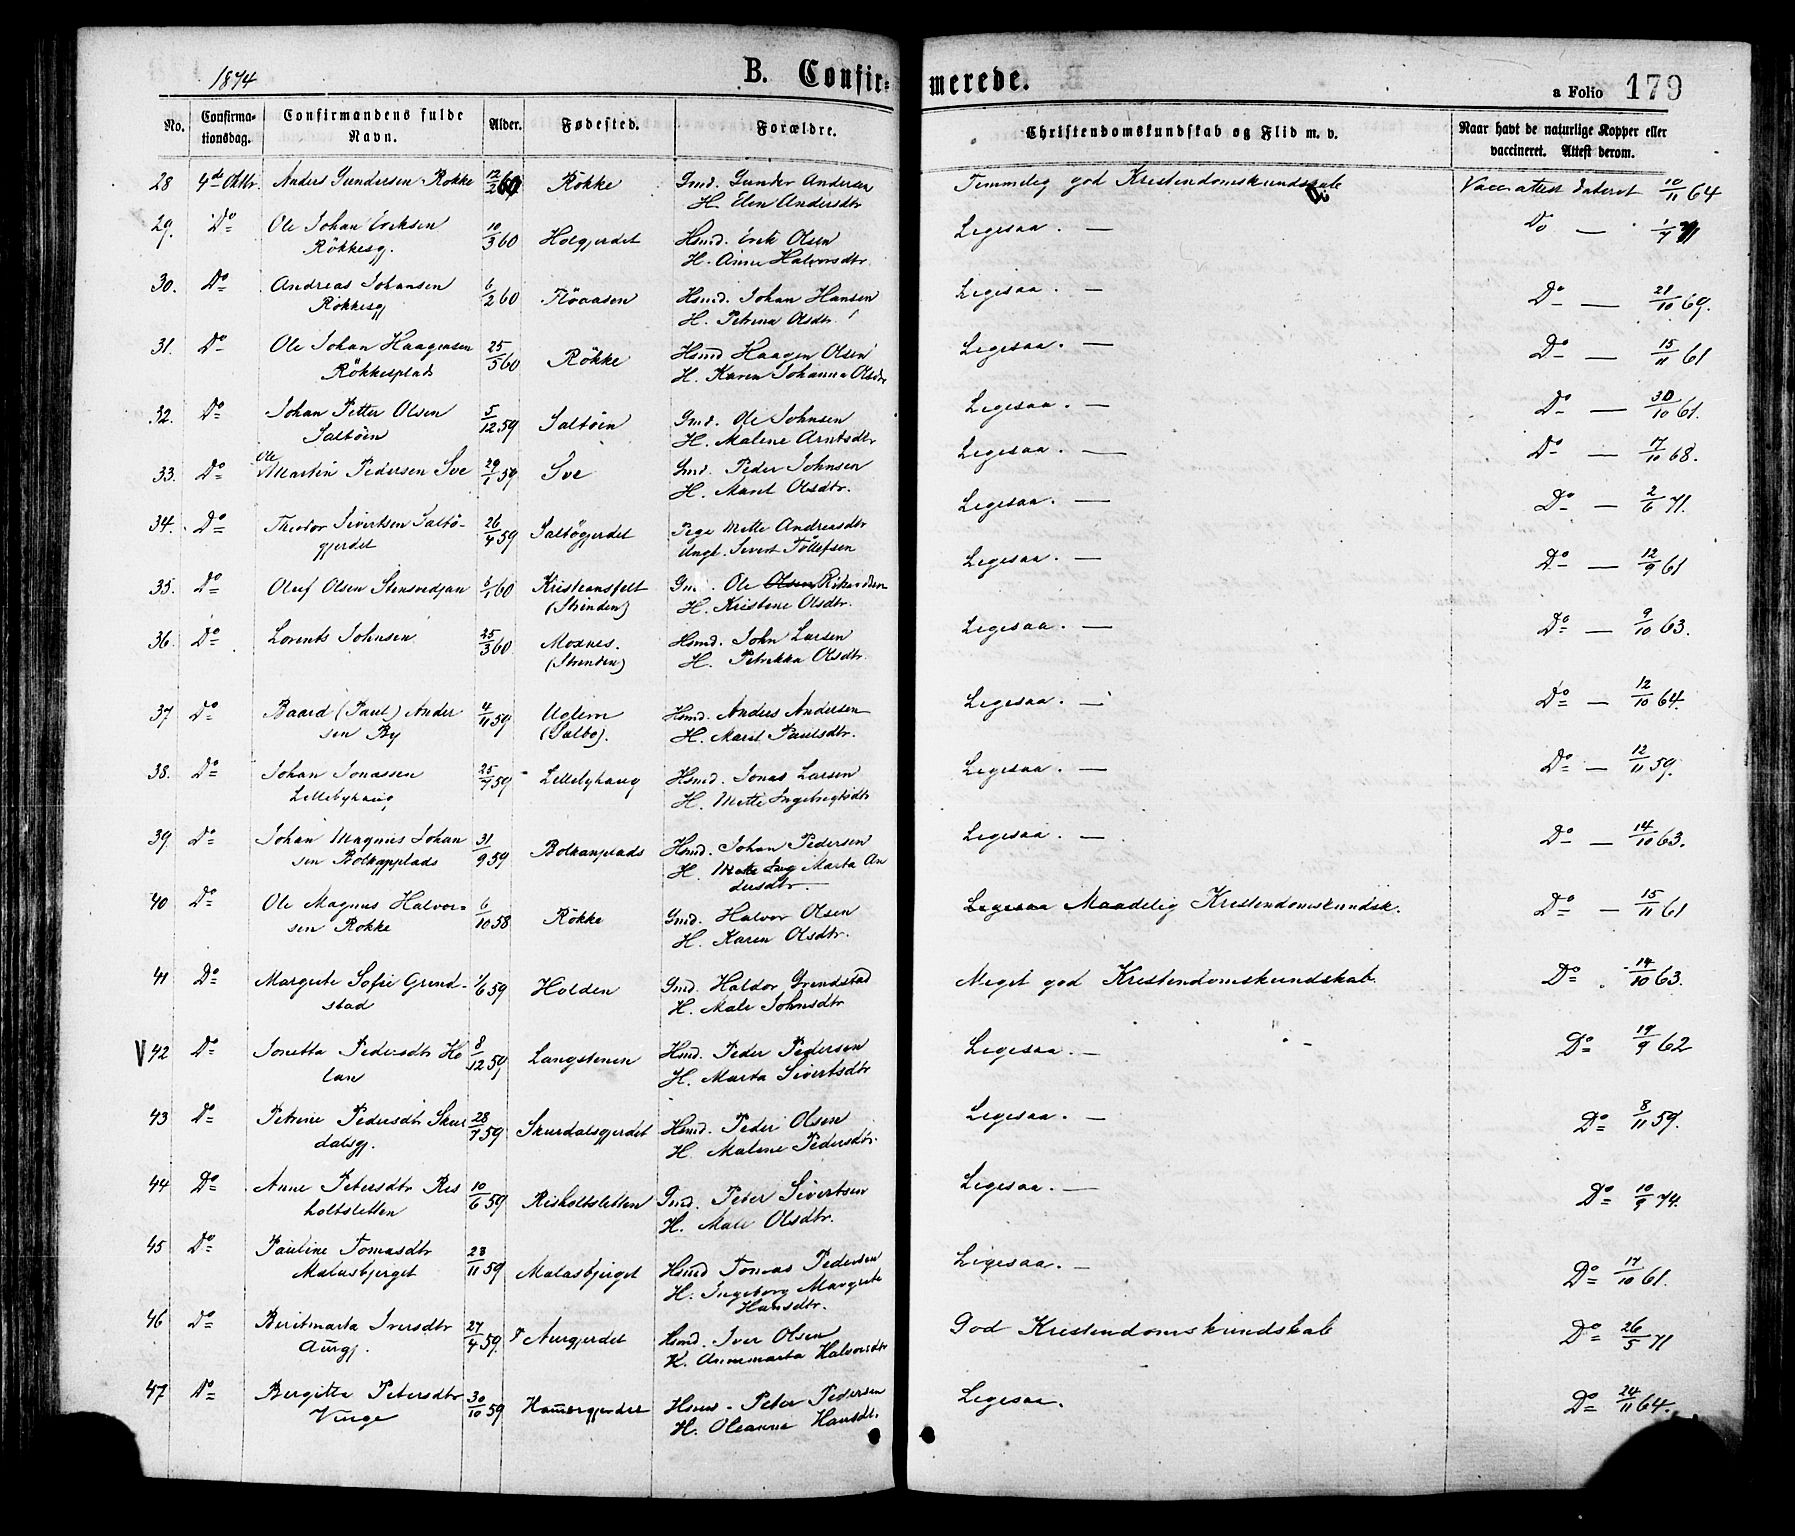 1874
B. Confir=
merede.
a Folio 179
No.
Confirma-
tionsdag.
Confirmandens fulde
Navn.
Alder.
Fødested.
Forældre.
Christendomskundskab og Flid m. v.
Naar havt de naturlige Kopper eller
vaccineret. Attest derom.
28 4de Oktbr. Anders Gundersen Rökke 12/2 60 Rökke Gmd. Gunder Andersen Temmelig god Kristendomskundskab Vaccattest dateret 10/11 64
H. Elen Andersdtr
29. Do Ole Johan Eriksen 10/3 60 Holgjerdet Hsmd. Erik Olsen Ligesaa. — Do — 1/7 71
Rökkesg. H. Anne Halvorsdtr
30. Do Andreas Johansen 6/2 60 Flöaasen Hsmd. Johan Hansen Ligesaa. — Do — 21/10 69.
Rökkesg H. Petrina Olsdtr.
31. Do Ole Johan Haagensen 25/5 60 Rökke Hsmd Haagen Olsen Ligesaa. — Do — 15/11 61
Rökkesplads H. Karen Johanna Olsdtr
32. Do Johan Petter Olsen 5/12 59 Saltöien Gmd. Ole Johnsen Ligesaa. — Do — 30/10 61.
Saltöien H. Malene Arntsdtr
33. Do Ole Martin Pedersen Sve 29/1 59 Sve Gmd. Peder Johnsen Ligesaa. — Do — 17/10 68.
H. Marit Olsdtr.
34. Do Theodor Sivertsen Saltö- 26/4 59 Saltögjerdet Pige Mette Andreasdtr Ligesaa. — Do — 2/6 71.
gjerdet Ungk. Sivert Tollefsen
35. Do Oluf Olsen Stensvedjan 5/1 60 Kristiansfelt Gmd. Ole Olsen Rikardsen Ligesaa. — Do — 12/9 61
(Strinden) H. Kristine Olsdtr.
36. Do Lorents Johnsen 25/3 60 Moxnes. Hsmd. John Larsen Ligesaa. — Do — 9/10 63.
(Strinden) H. Petrikka Olsdtr.
37 Do Baard (Paul) Ander 4/11 59 Uglem Hsmd. Anders Andersen Ligesaa. — Do — 12/10 64.
sen By (Salbo). H. Marit Paulsdtr.
38. Do Johan Jonassen 25/7 59 Lillebyhaug Hsmd. Jonas Larsen Ligesaa. — Do — 12/11 59.
Lillebyhaug H. Mette Ingebrigtsdtr
39 Do Johan Magnus Johan 31/9 59 Bolkanplads Hsmd. Johan Pedersen Ligesaa. — Do — 14/10 63.
sen Bolkapplads H. Mette Ing Marta An
dersdtr.
40 Do Ole Magnus Halvor- 6/10 58 Rökke Gmd. Halvor Olsen Ligesaa Maadelig Kristendomskundsk. Do — 15/11 61
sen Rökke H. Karen Olsdtr.
41 Do Margrete Sofie Grind- 1/6 59 Holden Gmd. Haldor Grindstad Meget god Kristendomskundskab. Do 14/10 63.
stad H. Mali Johnsdtr
V 42 Do Jonetta Pedersdtr Ho 8/12 59 Langstenen Hsmd. Peder Pedersen Ligesaa. — Do 19/9 62
lan H. Marta Sivertsdtr
43 Do Petrine Pedersdtr Skur 28/7 59 Skurdalsgjerdet Hsmd. Peder Olsen Ligesaa. — Do 8/11 59.
dalsgj. H. Malene Pedersdtr.
44 Do Anne Petersdtr Ris 10/6 59 Risholtsletten Gmd. Peter Sivertsen Ligesaa. — Do 10/9 74.
holtsletten H. Mali Olsdtr.
45 Do Pauline Tomasdtr 23/11 59 Malasbjerget Hsmd Tomas Pedersen Ligesaa. — Do 17/10 61.
Malasbjerget H. Ingeborg Margrete
Hansdtr.
46 Do Beritmarta Iversdtr 27/4 59. Aurgjerdet Hsmd. Iver Olsen God Kristendomskundskab Do 26/5 71
Aurgj. K. Annmarta Halvorsdtr
47 Do Bergitta Petersdtr 30/10 59 Hammergjerdet Hsmd. Peter Pedersen Ligesaa. Do 24/11 64.
Vinge H. Oleanna Hansdtr.